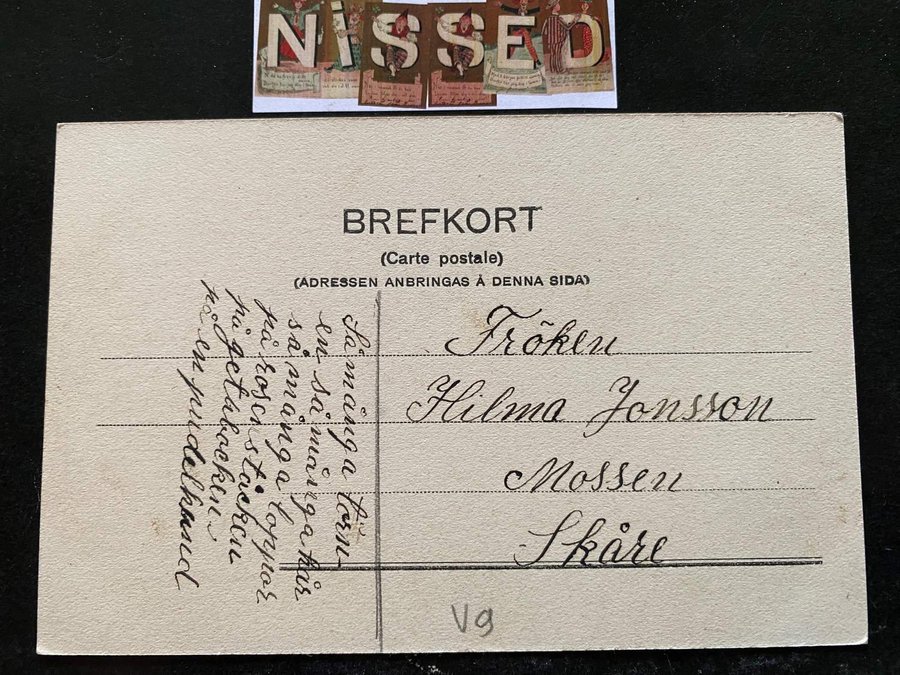 NISSED
BREFKORT
(Carte postale)
(ADRESSEN ANBRINGAS Å DENNA SIDA)
Så många törn-
en så många hår
så många loppor
på rosenståcken
på getabocken
på en pudelhund
Fröken
Hilma Jonsson
Mossen
Skåre
Vg